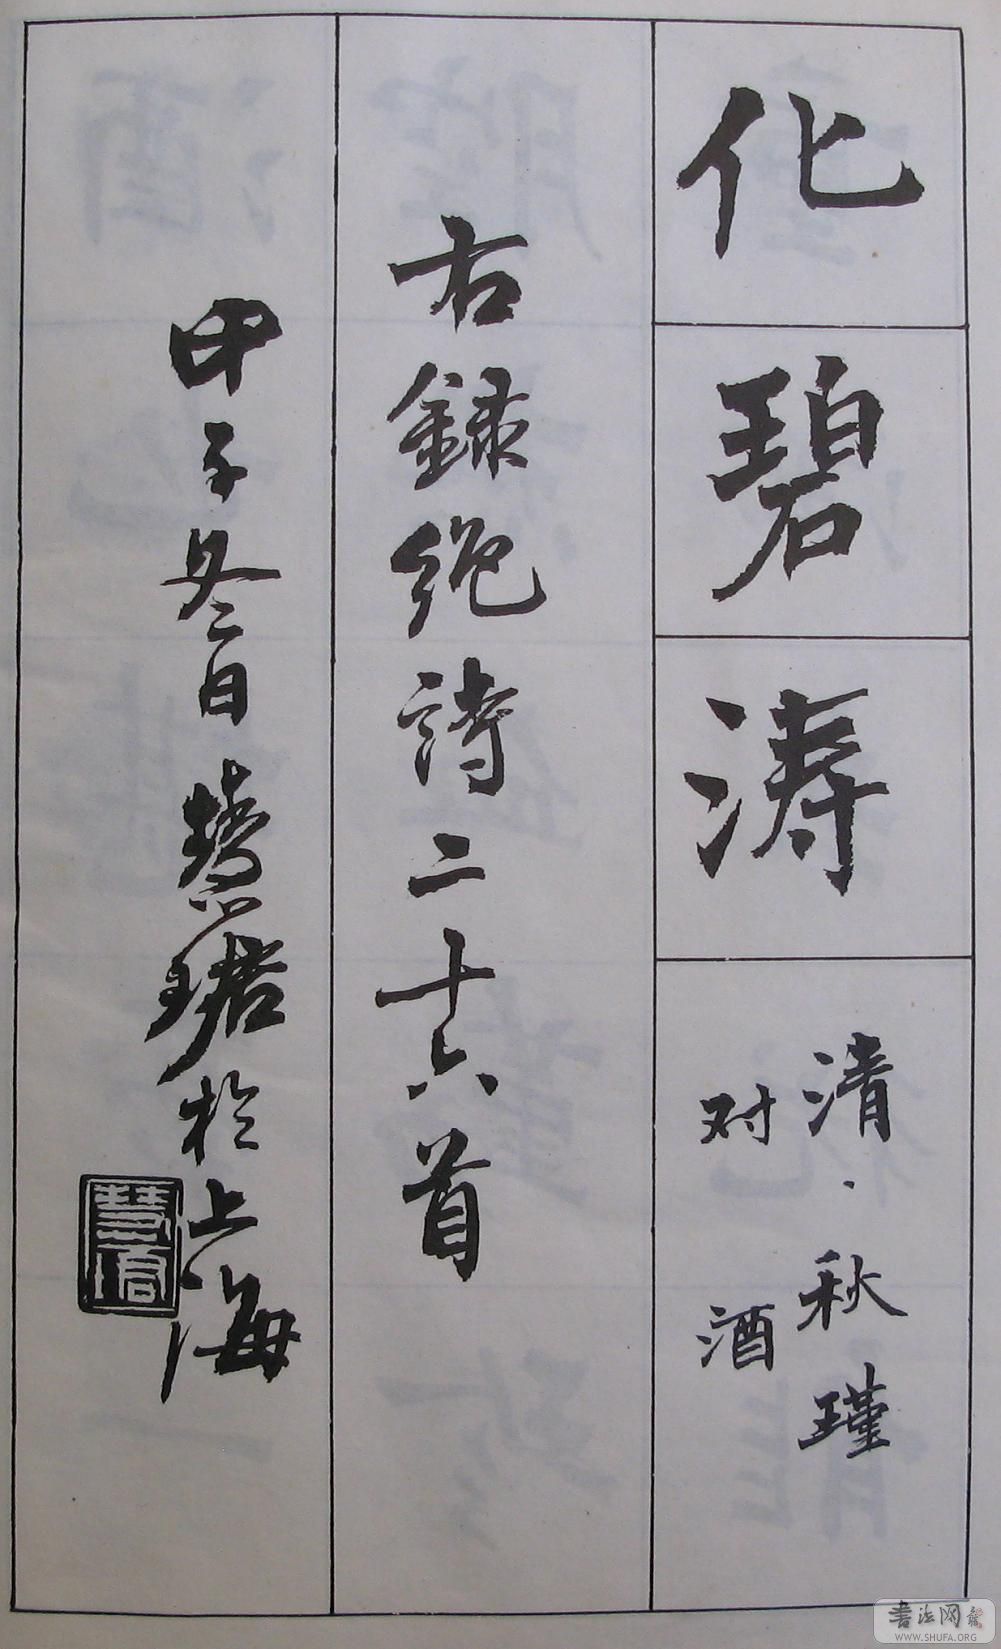 化碧涛
清·秋瑾
对酒
右録绝詩二十六首
甲子冬日慧珺於上海
書法网
WWW.SHUFA.ORG